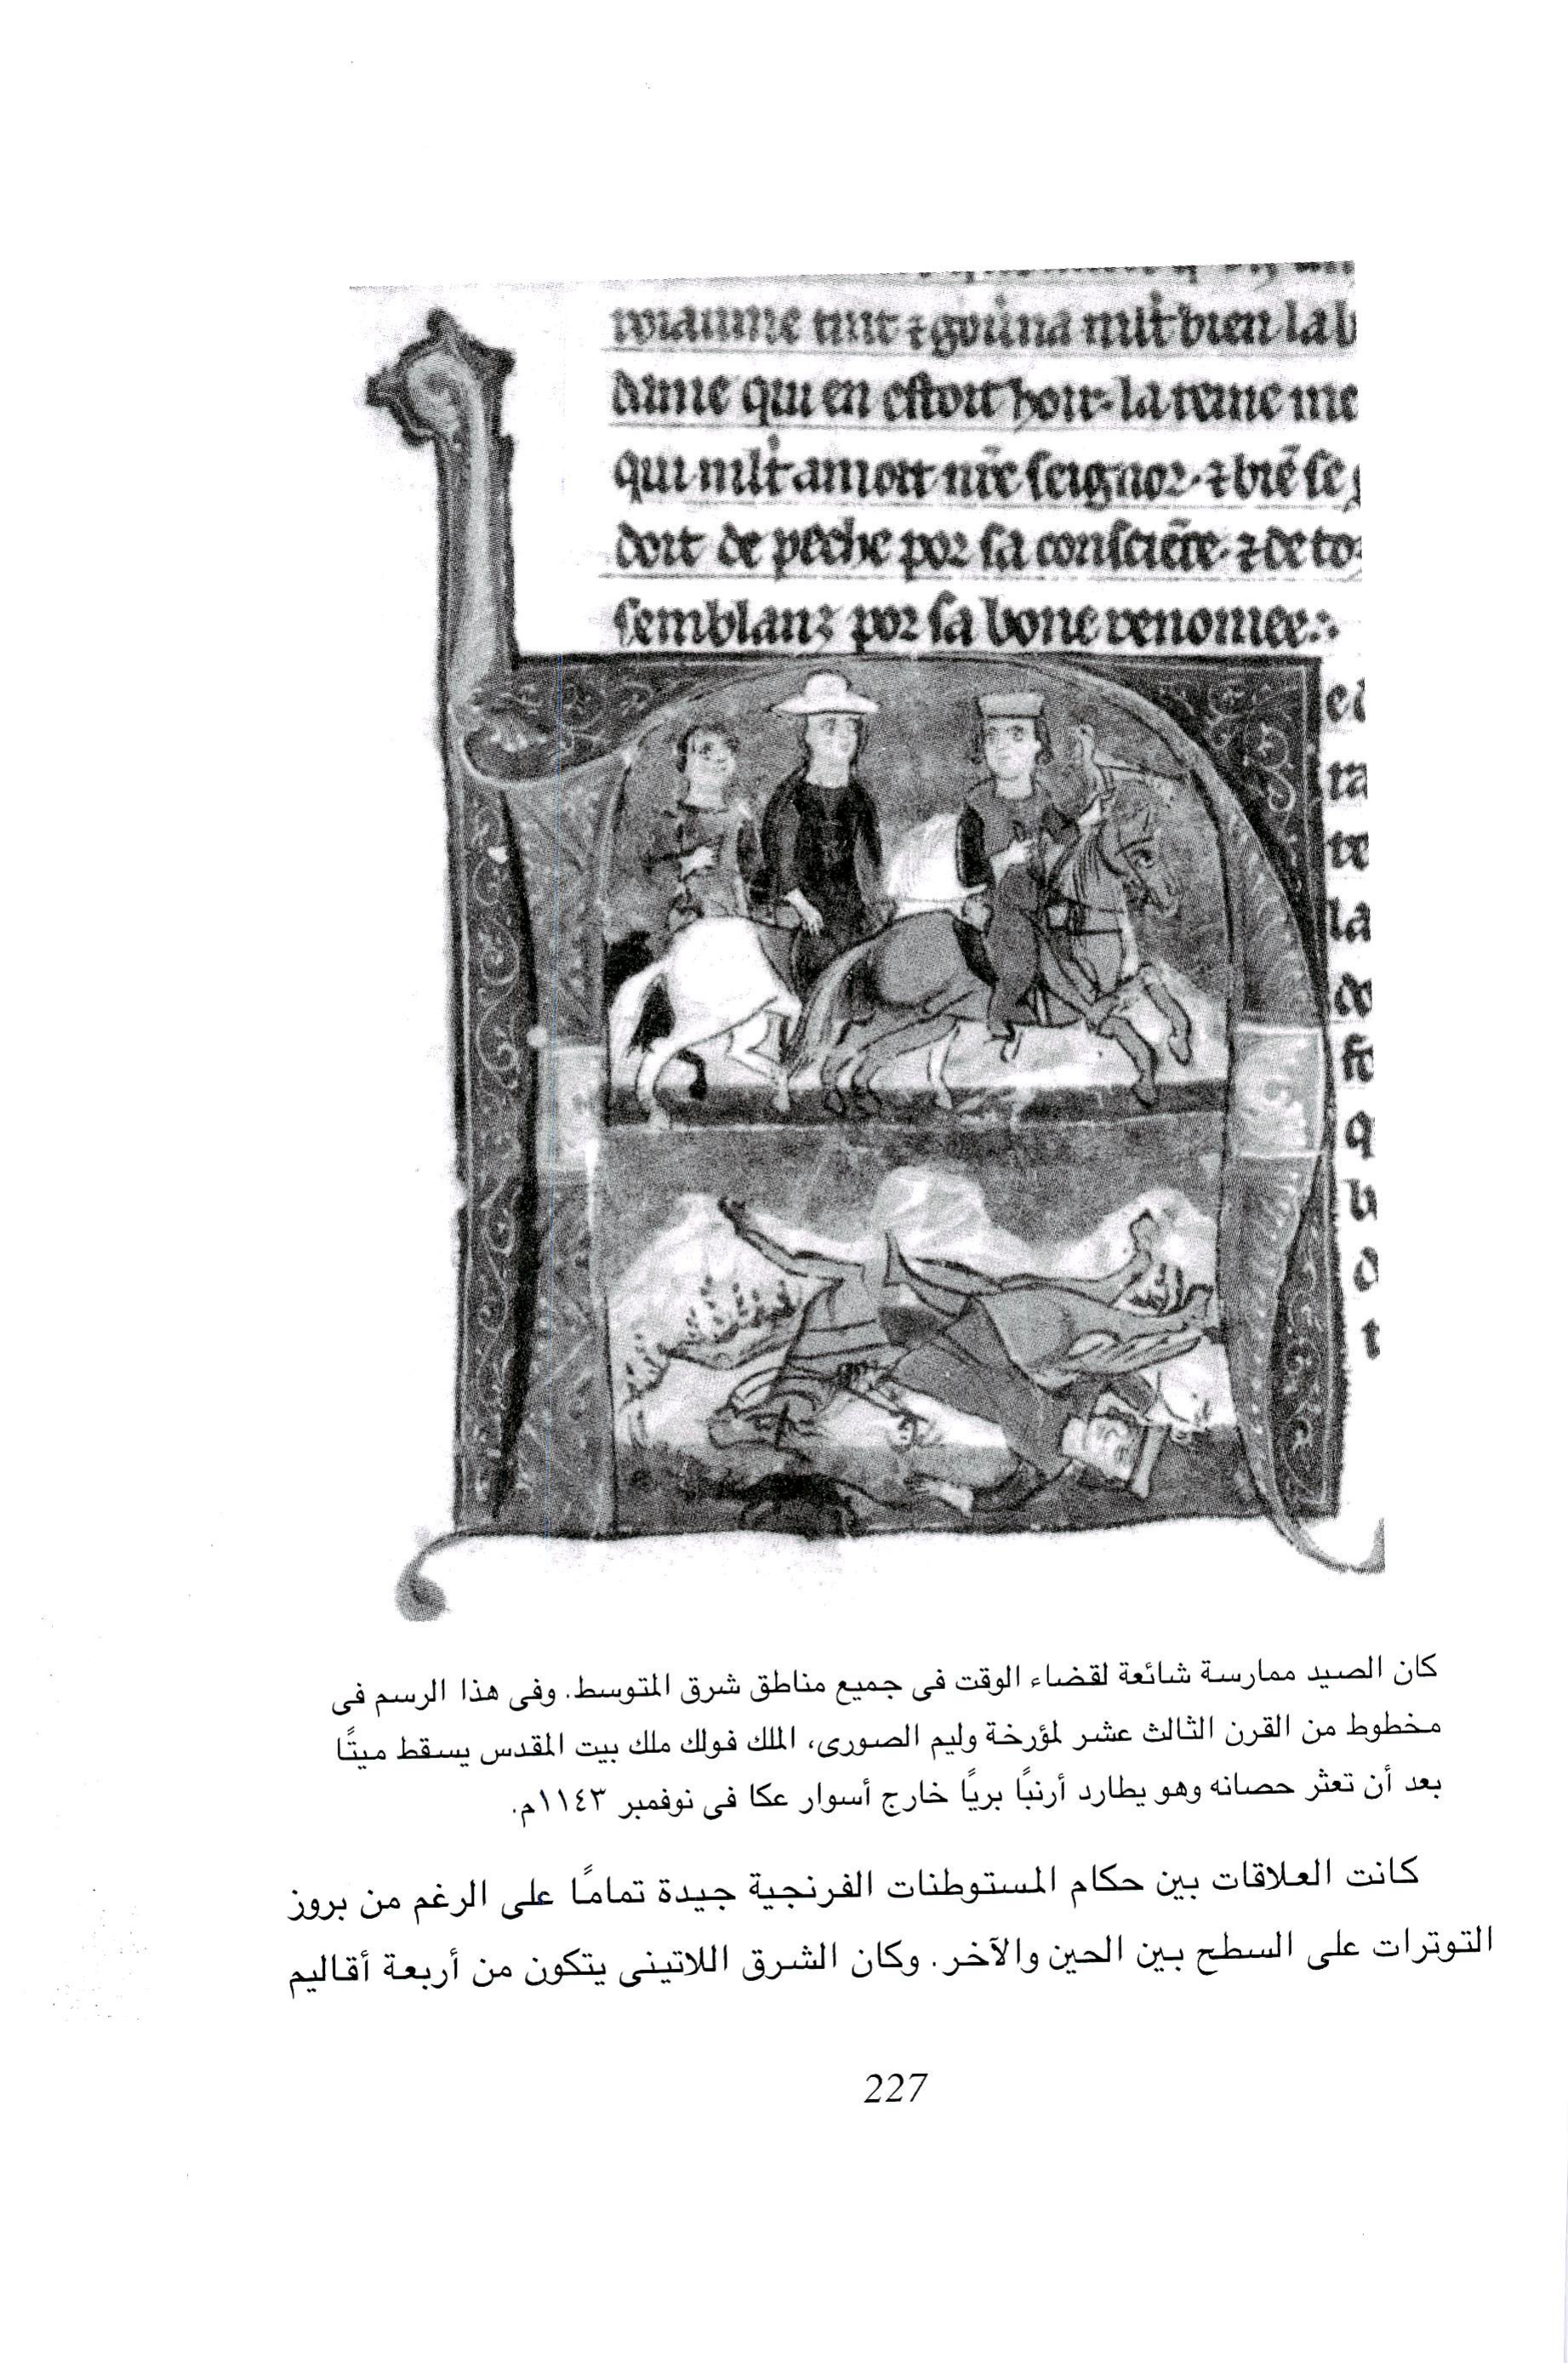 roiaume tint ⁊ gou̇na ml't bien la b
dame qui en estoit hoir. la reine me
qui ml't amoit nr̄e seignor. ⁊ biē se
doit de peche por sa consciēce. ⁊ de to
semblanz por sa bone renomee.
ra
la
q
t
كان الصيد ممارسة شائعة لقضاء الوقت فى جميع مناطق شرق المتوسط. وفى هذا الرسم فى
مخطوط من القرن الثالث عشر لمؤرخة وليم الصورى، الملك فولك ملك بيت المقدس يسقط ميتًا
بعد أن تعثر حصانه وهو يطارد أرنبًا بريًا خارج أسوار عكا فى نوفمبر ١١٤٣م.
كانت العلاقات بين حكام المستوطنات الفرنجية جيدة تمامًا على الرغم من بروز
التوترات على السطح بين الحين والآخر. وكان الشرق اللاتينى يتكون من أربعة أقاليم
227